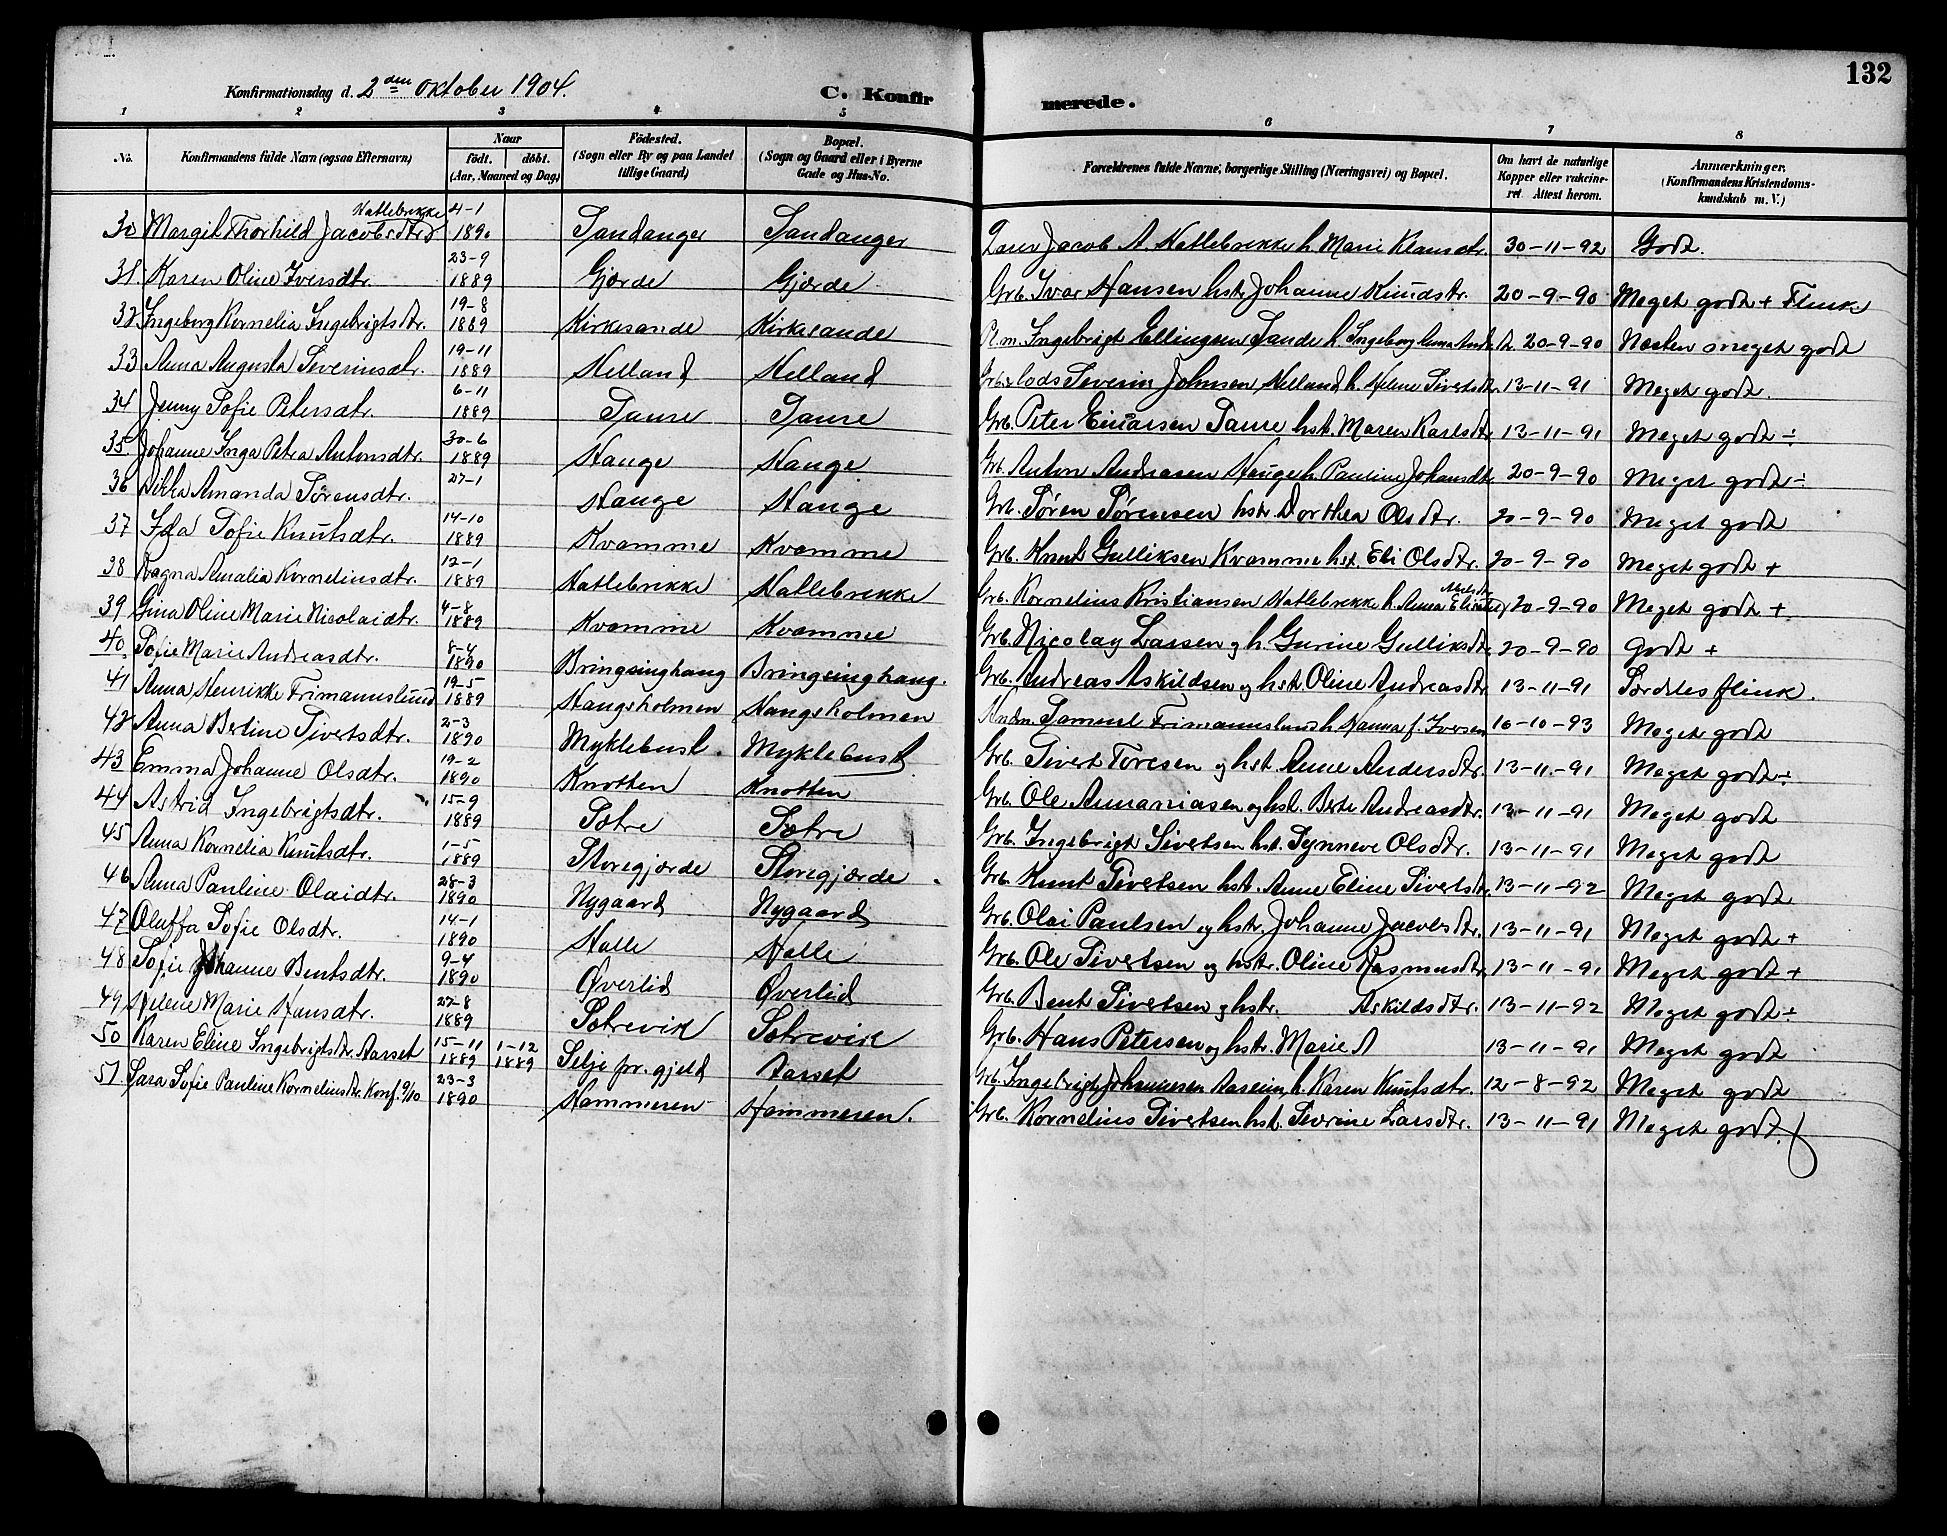 132
Konfirmationsdag d. 2den Oktober 1904.
C. Konfirmerede.
1 2 3 4 5 6 7 8
No. Konfirmandens fulde Navn (ogsaa Efternavn) Naar födt. döbt. (Aar, Maaned og Dag) Födested. (Sogn eller By og paa Landet tillige Gaard) Bopæl. (Sogn og Gaard eller i Byerne Gade og Hus-No. Forældrenes fulde Navne, borgerlige Stilling (Næringsvei) og Bopæl. Om havt de naturlige Kopper eller vakcineret. Attest herom. Anmærkninger. (Konfirmandens Kristendomskundskab m. V.)
30 Margit Thorhild Jacobsdtr Hatlebrekke 4-1 1890 Sandanger Sandanger Jacob A. Hatlebrekke h. Marie Klausdtr. 30-11-92 Godt.
31. Karen Oline Iversdtr. 23-9 1889 Gjerde Gjerde Grb. Ivar Hansen hstr Johanne Knudstr. 20-9-90 Meget godt + Flink
32 Ingeborg Kornelia Ingebrigtsdtr. 19-8 1889 Kirkesande Kirkesande Pl.m. Ingebrigt Ellingsen Sande h. Ingeborg Anna 20-9-90 Næsten meget godt
33 Anna Augusta Severinsdtr. 19-11 1889 Helland Helland Grb. & lods Severin Johnsen Helland h. Helene Sivertsdtr. 13-11-91 Meget godt.
34 Jenny Sofie Petersdtr. 6-11 1889 Taure Taure Grb. Peter Einarsen Taure hst. Maren Karlsdtr 13-11-91 Meget godt ÷
35 Johanne Inga Petra Antonsdtr. 30-6 1889 Hauge Hauge Grb. Anton Andreasen Hauge h. Pauline Johansdtr. 20-9-90 Meget godt ÷
36 Rikka Amanda Sörensdtr. 27-1 Hauge Hauge Grb. Sören Sörensen hstr. Dorthea Olsdtr. 20-9-90 Meget godt
37 Ida Sofie Knutsdtr. 14-10 1889 Kvamme Kvamme Grb. Knut Gulliksen Kvamme hst. Eli Olsdtr. 20-9-90 Meget godt +
38 Ragna Amalia Korneliusdtr. 12-1 1889 Hatlebrekke Hatlebrekke Grb. Kornelius Kristiansen Hatlebrekke h. Anna 20-9-90 Meget godt +
39 Gina Oline Marie Nicolaidtr. 4-8 1889 Kvamme Kvamme Grb. Nicolay Larsen og h. Gurine Gulliksdtr. 20-9-90 Godt +
40. Sofie Marie Andreasdtr. 8-4 1890 Bringsinghaug Bringsinghaug. Grb. Andreas Askildsen og hst. Oline Andreasdtr 13-11-91 Særdeles flink.
41 Anna Henrikke Frimannslund 19-5 1889 Haugsholmen Haugsholmen Samuel Frimannslund h. Hanna f. Iversen 16-10-93 Meget godt
42 Anna Bertine Sivertsdtr. 2-3 1890 Myklebust Myklebust Grb. Sivert Toresen og hst. Anne Andersdtr. 13-11-91 Meget godt ÷
43 Emma Johanne Olsdtr. 19-2 1890 Knotten Knotten Grb. Ole Ananiasen og hst. Berte Andreasdtr. 13-11-91 Meget godt
44 Astrid Ingebrigtsdtr. 15-9 1889 Sætre Sætre Grb. Ingebrigt Sivertsen hst. Synneve Olsdtr. 13-11-91 Meget godt
45 Anna Kornelia Knutsdtr. 1-5 1889 Storegjerde Storegjerde Grb. Knut Sivertsen hst. Anne Eline Sivertsdtr. 13-11-92 Meget godt
46 Anna Pauline Olaidtr. 28-3 1890 Nygaard Nygaard Grb. Olai Paulsen og hstr. Johanne Jacobsdtr. 13-11-91 Meget godt +
47 Oluffa Sofie Olsdtr. 14-1 1890 Halle Halle Grb. Ole Sivertsen og hstr. Oline Rasmusdtr. 13-11-91 Meget godt +
48 Sofie Johanne Bentsdtr. 9-4 1890 Øverlid Øverlid Grb. Bent Sivertsen og hstr. Askildsdtr. 13-11-92 Meget godt ÷
49 Helene Marie Hansdtr. 27-8 1889 Sætrevik Sætrevik Grb. Hans Petersen og hstr. Marie A 13-11-91 Meget godt
50 Karen Eline Ingebrigtsdtr. Aarset 15-11 1889 1-12 1889 Selje pr.gjeld Aarset Grb. Ingebrigt Johannesen h. Karen Knutsdtr. 12-8-92 Meget godt
51 Sara Sofie Pauline Korneliusdtr. Konf. 9/10 23-3 1890 Hammeren Hammeren. Grb. Kornelius Sivertsen hst. Severine Larsdtr. 13-11-91 Meget godt.